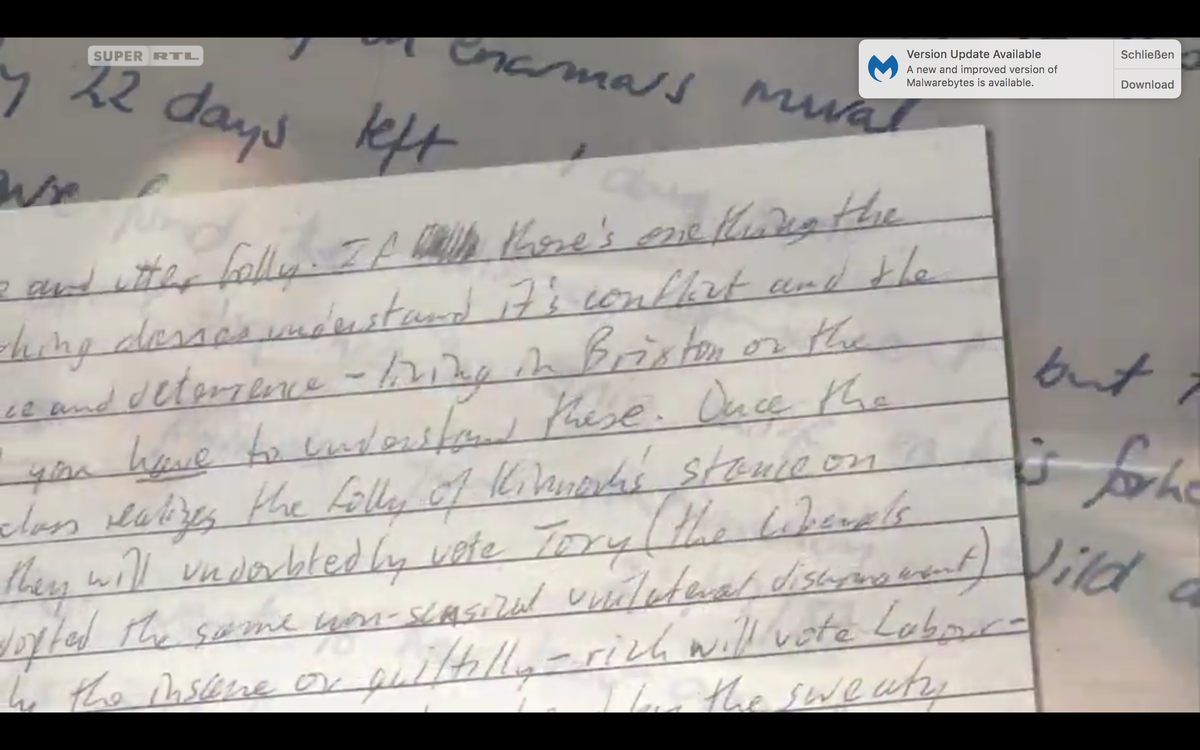 SUPER RTL
Version Update Available
A new and improved version of
Malwarebytes is available.
Schließen
Download
enormous mural
22 days left
and utter folly. If there's one thing the
classes understand it's conflict and the
and deterrence - living in Brixton or the
you have to understand these. Once the
class realizes the folly of Kinnock's stance on
they will undoubtedly vote Tory (the Liberals
the same non-sensical unilateral disarmament)
the insane or guiltily-rich will vote Labour-
the sweaty
but
is